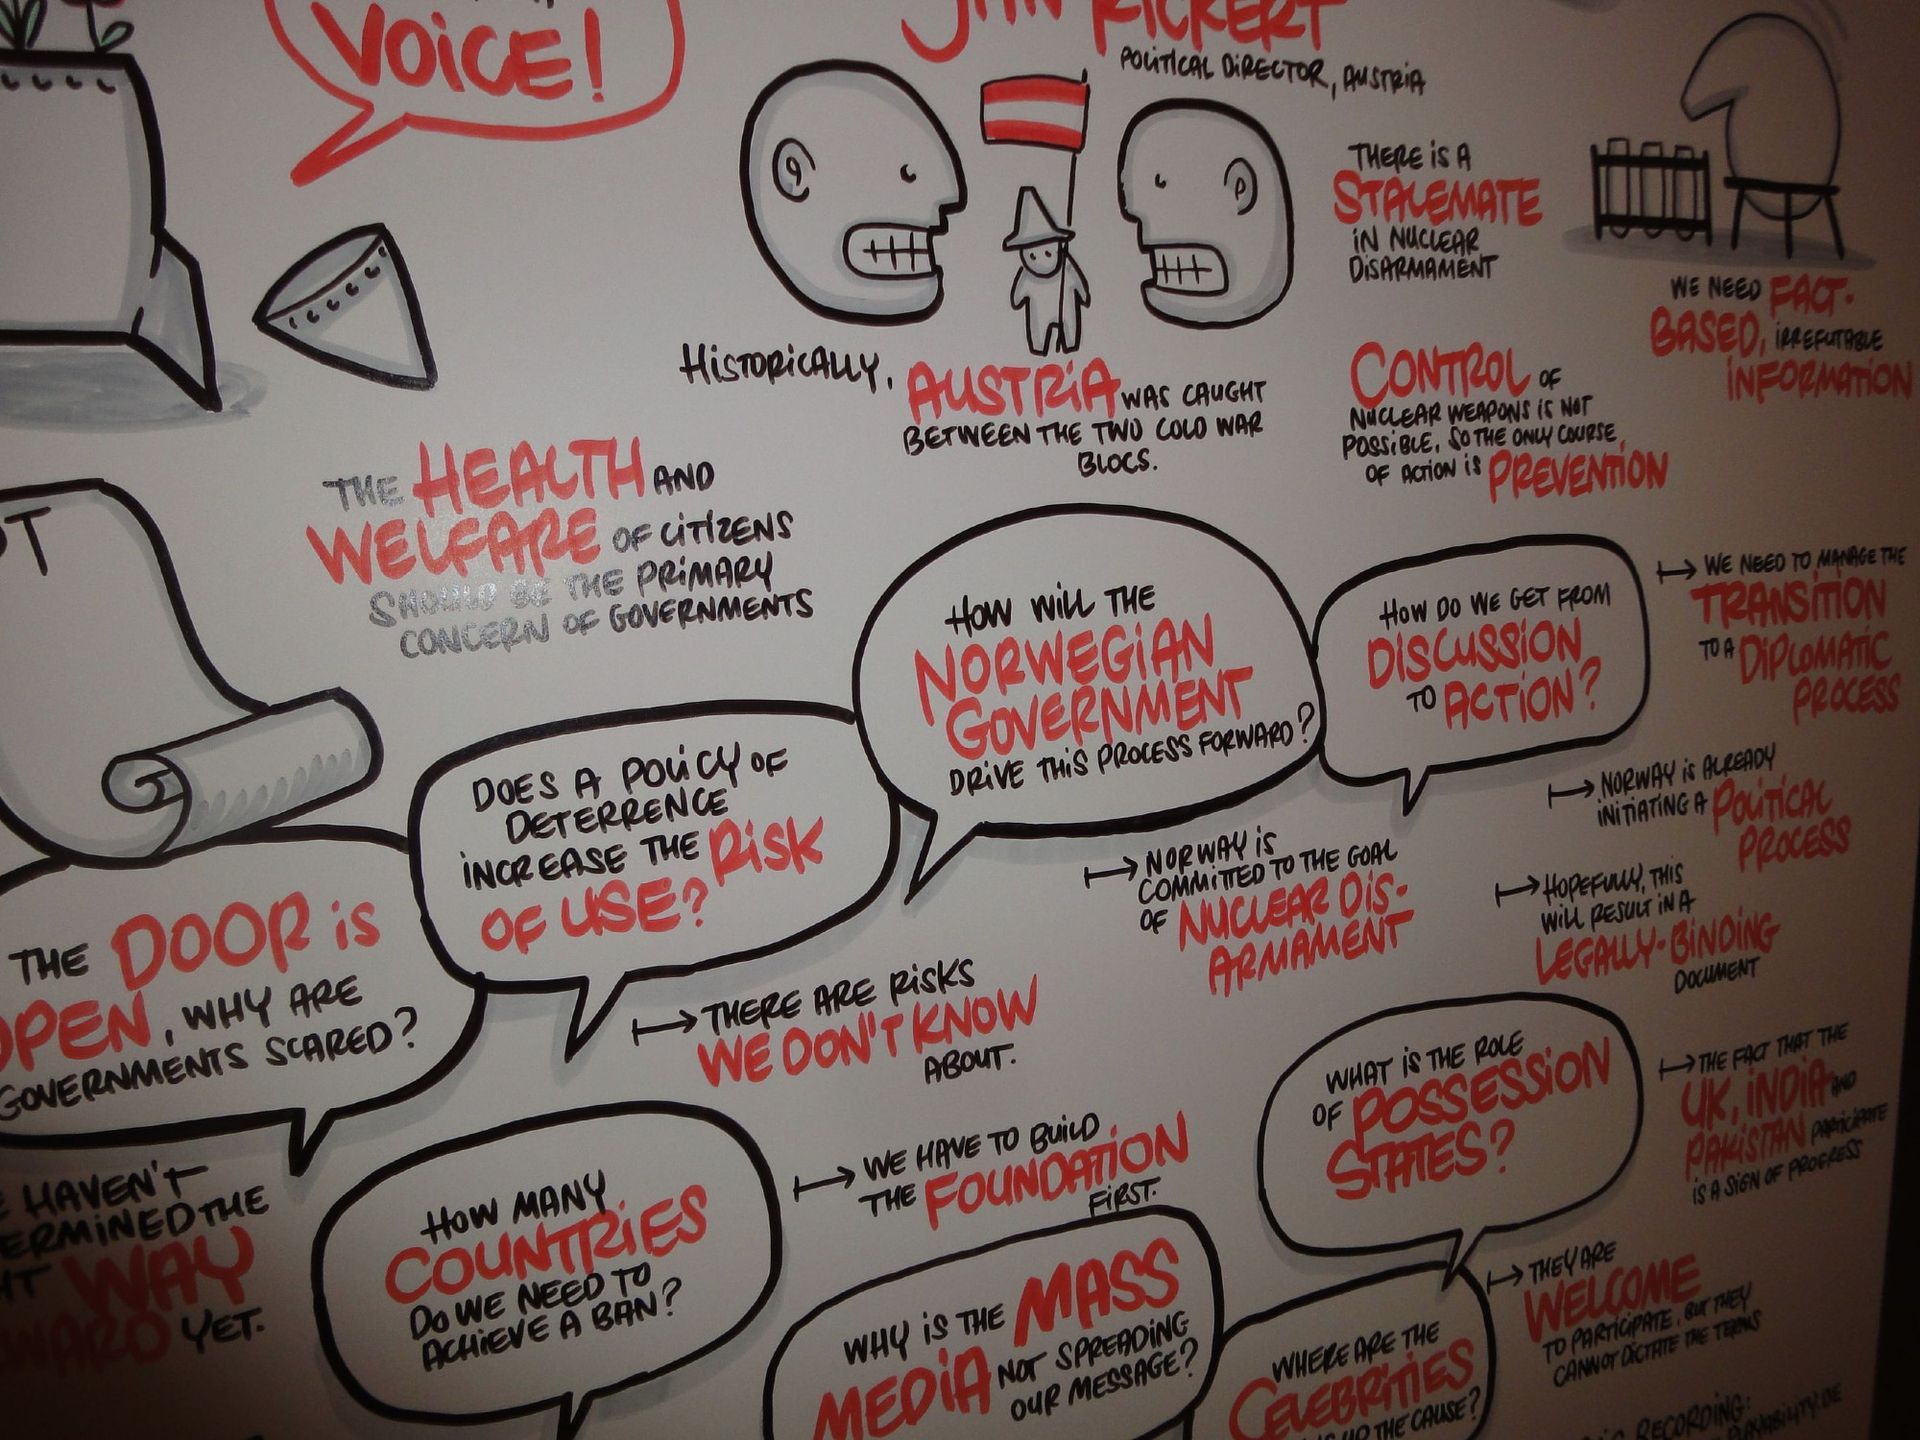 VOICE!
JAN KICKERT
POLITICAL DIRECTOR, AUSTRIA
THERE IS A
STALEMATE
IN NUCLEAR
DISARMAMENT
WE NEED FACT-
BASED, IRREFUTABLE
INFORMATION
HISTORICALLY,
AUSTRIA WAS CAUGHT
BETWEEN THE TWO COLD WAR
BLOCS.
CONTROL OF
NUCLEAR WEAPONS IS NOT
POSSIBLE, SO THE ONLY COURSE
OF ACTION IS PREVENTION
THE HEALTH AND
WELFARE OF CITIZENS
SHOULD BE THE PRIMARY
CONCERN OF GOVERNMENTS
T
HOW WILL THE
NORWEGIAN
GOVERNMENT
DRIVE THIS PROCESS FORWARD?
HOW DO WE GET FROM
DISCUSSION
TO ACTION?
WE NEED TO MANAGE THE
TRANSITION
TO A DIPLOMATIC
PROCESS
NORWAY IS ALREADY
INITIATING A POLITICAL
PROCESS
HOPEFULLY, THIS
WILL RESULT IN A
LEGALLY-BINDING
DOCUMENT
NORWAY IS
COMMITTED TO THE GOAL
OF NUCLEAR DIS-
ARMAMENT
DOES A POLICY OF
DETERRENCE
INCREASE THE RISK
OF USE?
THERE ARE RISKS
WE DON'T KNOW
ABOUT.
THE DOOR IS
OPEN, WHY ARE
GOVERNMENTS SCARED?
HAVEN'T
ERMINED THE
HT WAY
WARD YET.
HOW MANY
COUNTRIES
DO WE NEED TO
ACHIEVE A BAN?
WE HAVE TO BUILD
THE FOUNDATION
FIRST.
WHAT IS THE ROLE
OF POSSESSION
STATES?
THE FACT THAT THE
UK, INDIA AND
PAKISTAN PARTICIPATE
IS A SIGN OF PROGRESS
THEY ARE
WELCOME
TO PARTICIPATE, BUT THEY
CANNOT DICTATE THE TERMS
WHY IS THE MASS
MEDIA NOT SPREADING
OUR MESSAGE?
WHERE ARE THE
CELEBRITIES
THE CAUSE?
RECORDING: